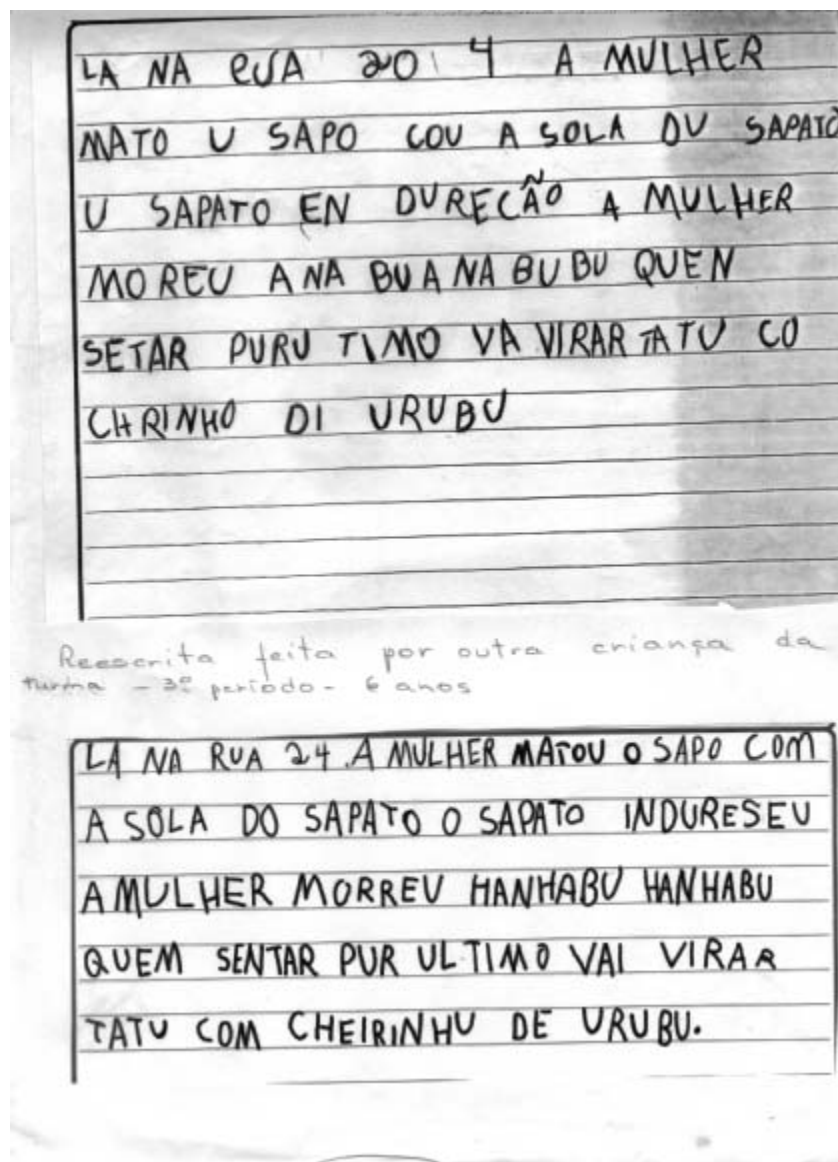 LA NA RUA 20 4 A MULHER
MATO U SAPO COU A SOLA DU SAPATO
U SAPATO EN DURECÃO A MULHER
MOREU ANA BUANA BUBU QUEN
SETAR PURU TIMO VA VIRAR TATU CO
CHRINHO DI URUBU
Reescrita feita por outra criança da
turma - 3º período - 6 anos
LA NA RUA 24. A MULHER MATOU O SAPO COM
A SOLA DO SAPATO O SAPATO INDURESEU
A MULHER MORREU HANHABU HANHABU
QUEM SENTAR PUR ULTIMO VAI VIRAR
TATU COM CHEIRINHU DE URUBU.